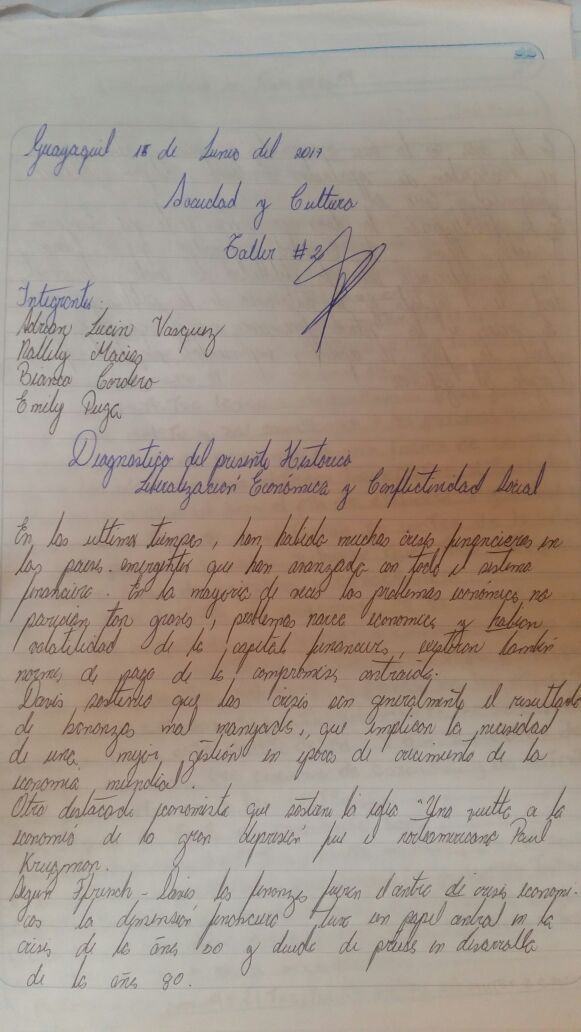 Guayaquil 15 de Junio del 2017
Sociedad y Cultura
Taller #2
Integrantes:
Adrian Lucin Vasquez
Nallely Macias
Bianca Cordero
Emily Puga
Diagnostico del presente Historico
Liberalización Económica y Conflictividad Social
En los ultimos tiempos, han habido muchas crisis financieras en
los paises emergentes que han avanzado con todo el sistema
financiero. En la mayoria de veces los problemas económicos no
parecian tan graves, problemas macro economicos y habian
volatilidad de los capitales financieros, existieron también
normas de pago de los compromisos
Davis sostenia que las crisis son generalmente el resultado
de bonanzas mal manejadas, que implican la necesidad
de una mejor gestión en epocas de crecimiento de la
economia mundial.
Otro destacado economista que sostiene la idea "Una vuelta a la
economia de la gran depresión fue el norteamericano Paul
Krugman.
Según Ffrench-Davis las finanzas fueron el centro de crisis economi-
cas la dimensión financiera tuvo un papel central en la
crisis de los años 30 y deuda de paises en desarrollo
de los años 80.